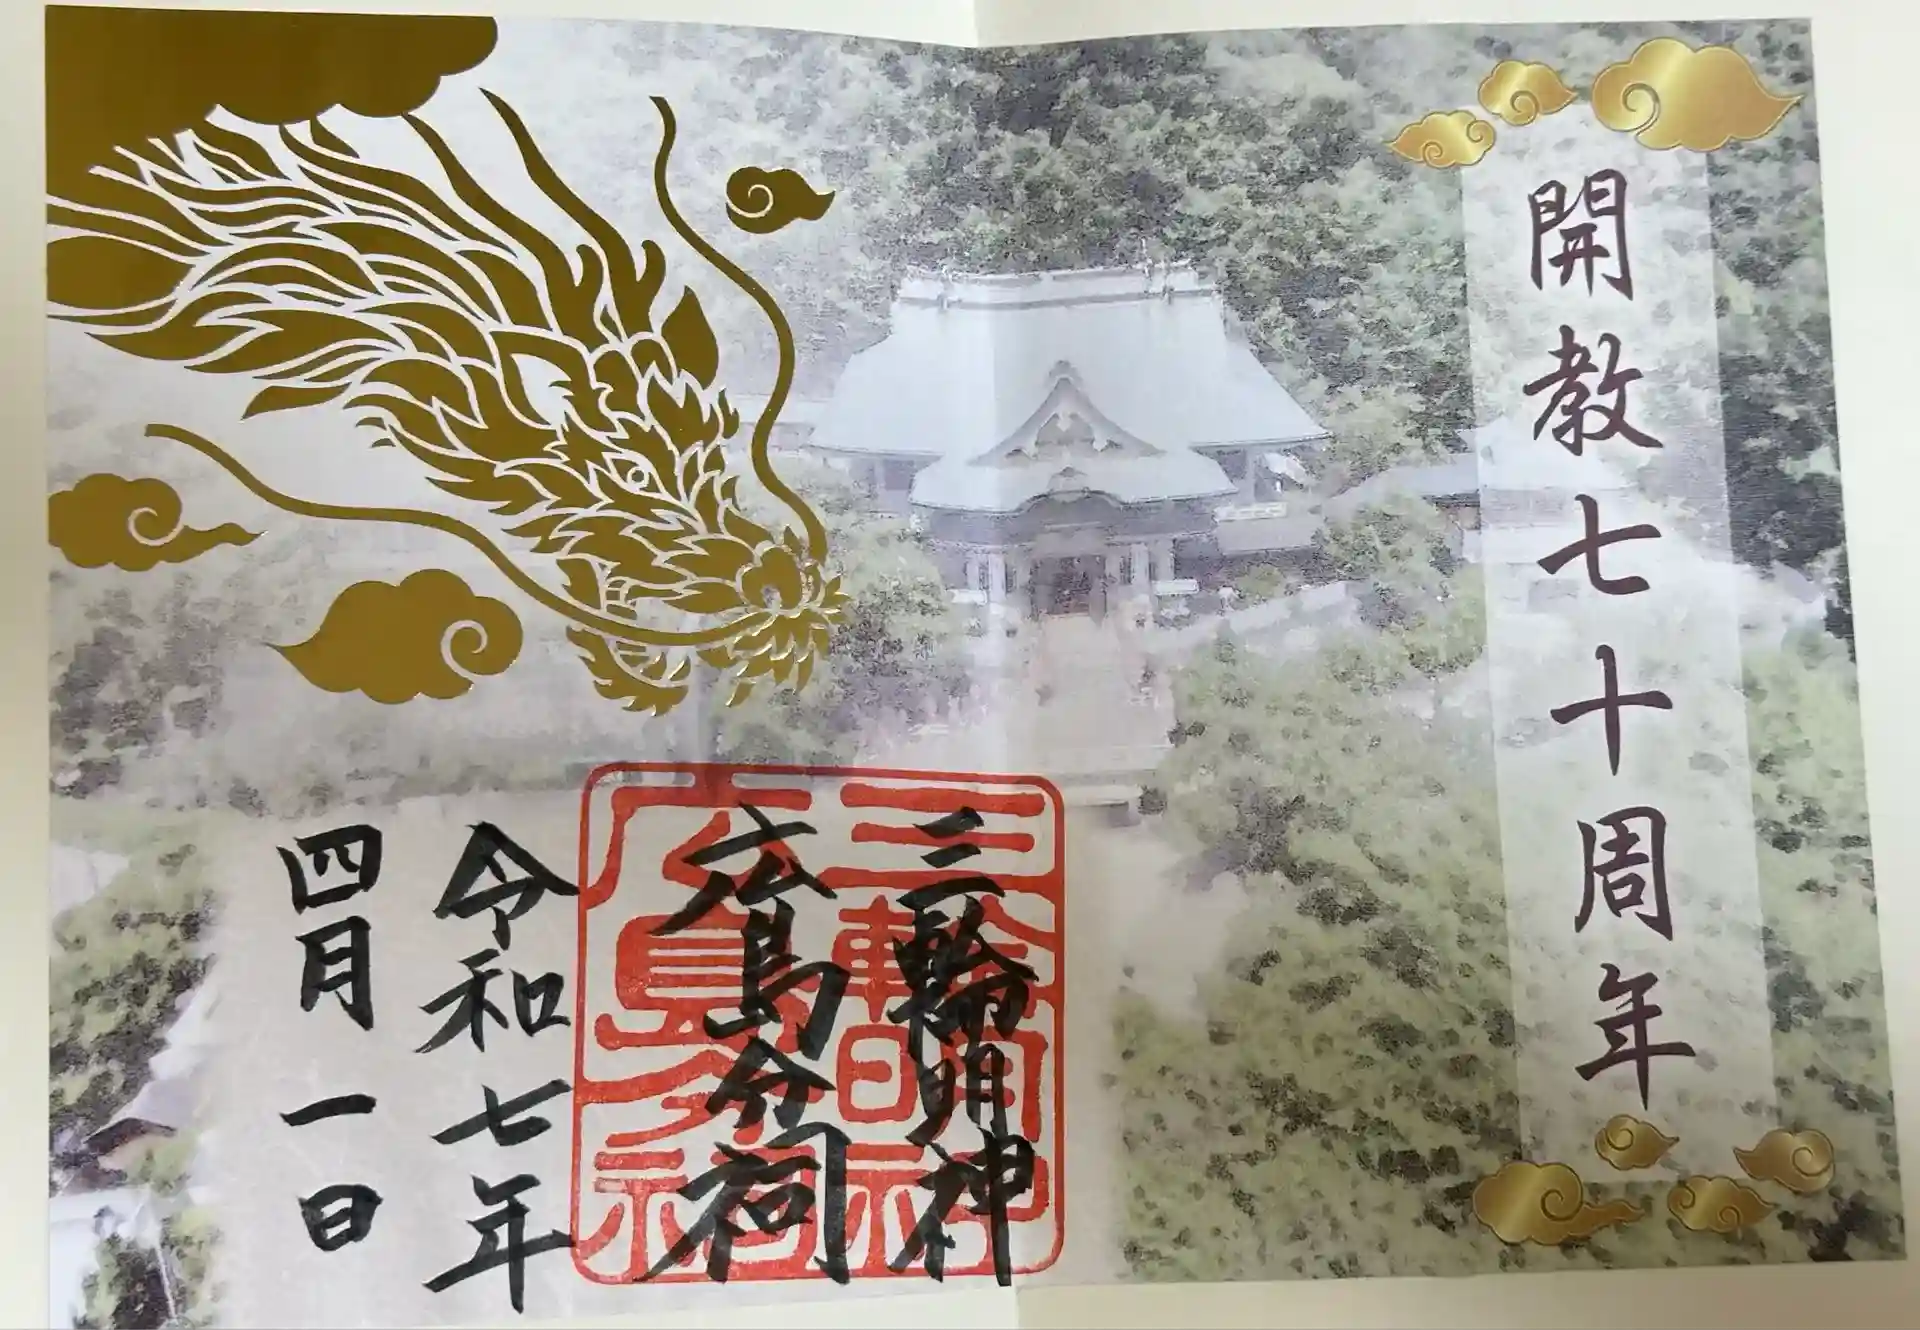 開教七十周年
三輪明神
広島分祠
三輪明神
広島分祠
令和七年
四月一日